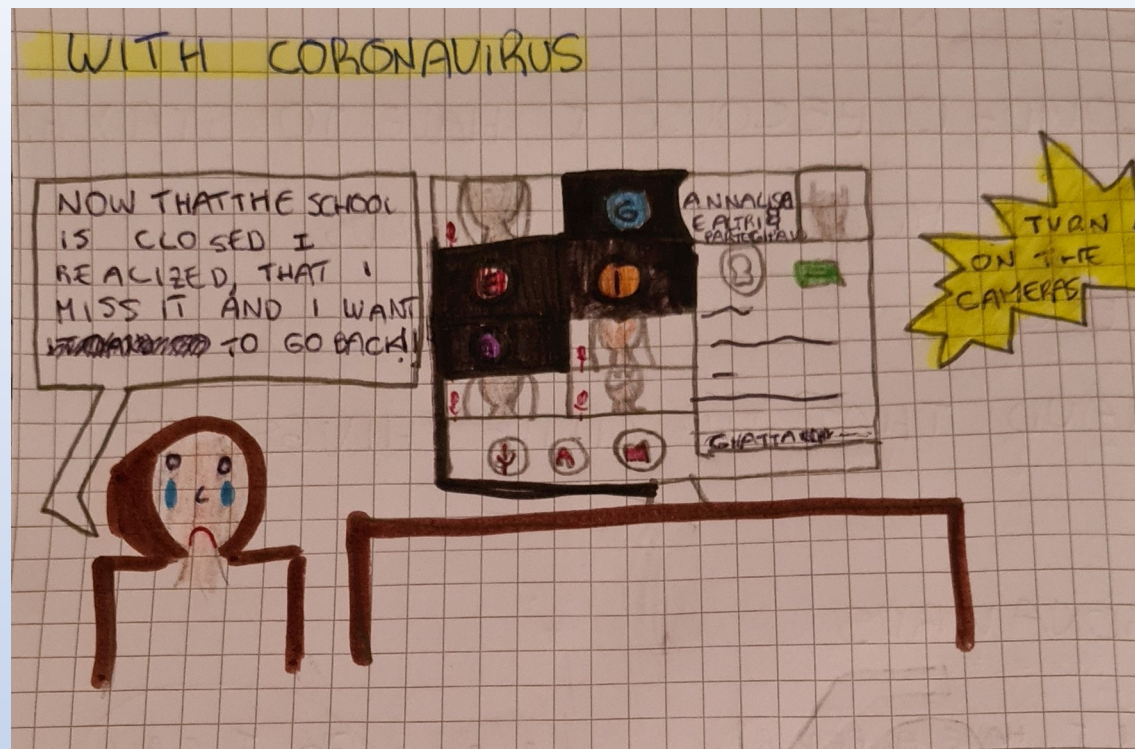 WITH CORONAVIRUS
NOW THAT THE SCHOOL
IS CLOSED I
REALIZED, THAT I
MISS IT AND I WANT
TO GO BACK!
G
I
ANNALISA
E ALTRI 8
A
TURN
ON THE
CAMERAS